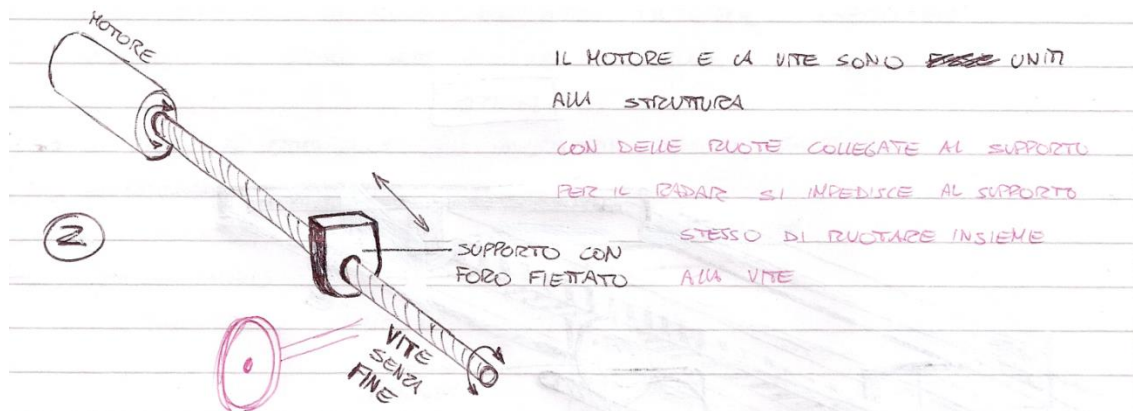 MOTORE
IL MOTORE E LA VITE SONO UNITI
ALLA STRUTTURA
CON DELLE RUOTE COLLEGATE AL SUPPORTO
PER IL RADAR SI IMPEDISCE AL SUPPORTO
STESSO DI RUOTARE INSIEME
ALLA VITE
2
SUPPORTO CON
FORO FIETTATO
VITE
SENZA
FINE